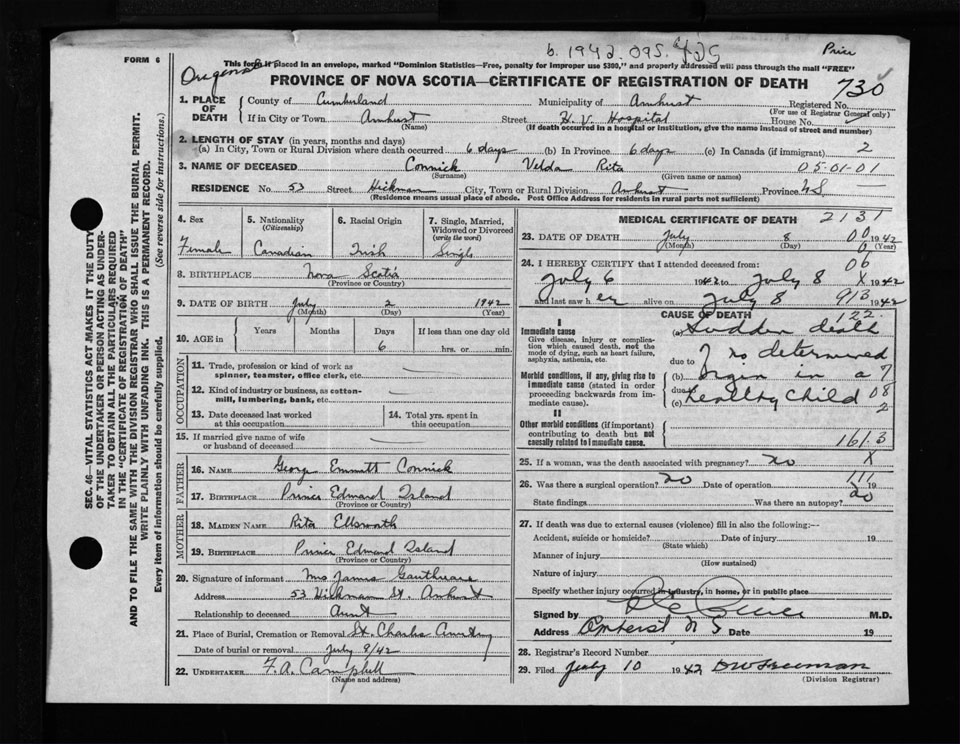 b. 1942.095.425
Price
FORM 6
This form if placed in an envelope, marked "Dominion Statistics—Free, penalty for improper use $300," and properly addressed will pass through the mail "FREE"
PROVINCE OF NOVA SCOTIA—CERTIFICATE OF REGISTRATION OF DEATH
730
1. PLACE OF DEATH
County of Cumberland Municipality of Amherst Registered No.
(For use of Registrar General only)
If in City or Town Amherst Street H. V. Hospital House No.
(Name) (If death occurred in a hospital or institution, give the name instead of street and number)
2. LENGTH OF STAY (in years, months and days)
(a) In City, Town or Rural Division where death occurred 6 days (b) In Province 6 days (c) In Canada (if immigrant) 2
3. NAME OF DECEASED Connick Velda Rita 05-01-01
(Surname) (Given name or names)
RESIDENCE No. 53 Street Hickman City, Town or Rural Division Amherst Province NS
(Residence means usual place of abode. Post Office Address for residents in rural parts not sufficient)
4. Sex
Female
5. Nationality
(Citizenship)
Canadian
6. Racial Origin
Irish
7. Single, Married, Widowed or Divorced
(write the word)
Single
8. BIRTHPLACE Nova Scotia
(Province or Country)
9. DATE OF BIRTH July 2 1942
(Month) (Day) (Year)
10. AGE in
Years Months Days If less than one day old
6 hrs. or min.
OCCUPATION
11. Trade, profession or kind of work as
spinner, teamster, office clerk, etc.
12. Kind of industry or business, as cotton-
mill, lumbering, bank, etc.
13. Date deceased last worked
at this occupation
14. Total yrs. spent in
this occupation
15. If married give name of wife
or husband of deceased
FATHER
16. NAME George Emmett Connick
17. BIRTHPLACE Prince Edward Island
(Province or Country)
MOTHER
18. MAIDEN NAME Rita Ellsworth
19. BIRTHPLACE Prince Edward Island
(Province or Country)
20. Signature of informant Mrs James
Address 53 Hickman St. Amherst
Relationship to deceased Aunt
21. Place of Burial, Cremation or Removal St. Charles
Date of burial or removal July 9/42
22. UNDERTAKER F. A. Campbell
(Name and address)
MEDICAL CERTIFICATE OF DEATH 2131
23. DATE OF DEATH July 8 1942
(Month) (Day) (Year)
00
24. I HEREBY CERTIFY that I attended deceased from: 06
July 6 1942 to July 8 X 1942
and last saw her alive on July 8 913 1942
CAUSE OF DEATH 122.
I
Immediate cause
Give disease, injury or complica-
tion which caused death, not the
mode of dying, such as heart failure,
asphyxia, asthenia, etc.
(a) Sudden death
due to ? no determined
Morbid conditions, if any, giving rise to
immediate cause (stated in order
proceeding backwards from im-
mediate cause).
(b) orgin in a 7
due to
(c) healthy child 08
2
II
Other morbid conditions (if important)
contributing to death but not
causally related to immediate cause.
161.3
25. If a woman, was the death associated with pregnancy? no X
26. Was there a surgical operation? no Date of operation 19
State findings Was there an autopsy? no
27. If death was due to external causes (violence) fill in also the following:—
Accident, suicide or homicide? Date of injury 19
(State which)
Manner of injury
(How sustained)
Nature of injury
Specify whether injury occurred in industry, in home, or in public place
Signed by M.D.
Address Amherst N S Date 19
28. Registrar's Record Number
29. Filed July 10 1942 DW Freeman
(Division Registrar)
SEC. 46—VITAL STATISTICS ACT MAKES IT THE DUTY
OF THE UNDERTAKER OR PERSON ACTING AS UNDER-
TAKER TO OBTAIN ALL THE PARTICULARS REQUIRED
IN THE "CERTIFICATE OF REGISTRATION OF DEATH"
AND TO FILE THE SAME WITH THE DIVISION REGISTRAR WHO SHALL ISSUE THE BURIAL PERMIT.
WRITE PLAINLY WITH UNFADING INK. THIS IS A PERMANENT RECORD.
Every item of information should be carefully supplied. (See reverse side for instructions.)